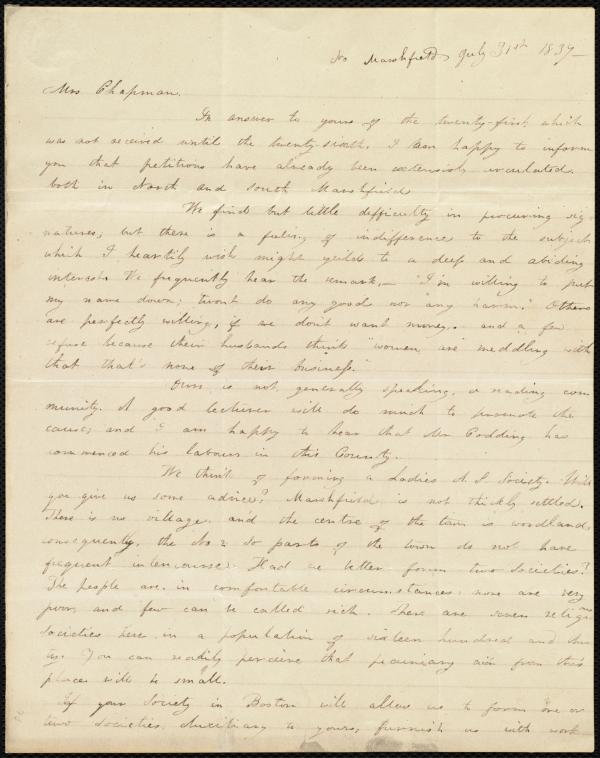 No Marshfield July 31st 1837—
Mrs Chapman.
In answer to yours of the twenty-first, which
was not received until the twenty-sixth, I am happy to inform
you that petitions have already been extensively circulated
both in North and South Marshfield
We find but little difficulty in procuring sig
natures; but there is a feeling of indifference to the subject
which I heartily wish might yeild to a deep and abiding
interest. We frequently hear the remark,— "I'm willing to put
my name down; twont do any good nor any harm." Others
are perfectly willing, if we dont want money. and a few
refuse because their husbands think "women are meddling with
that that's none of their business."
Ours is not, generally speaking, a reading com
munity. A good lecturer will do much to promote the
cause; and I am happy to hear that Mr Codding has
commenced his labours in this County.
We think of forming a Ladies A. S Society. Will
you give us some advice? Marshfield is not thickly settled.
There is no village and the centre of the town is woodland,
consequently, the No & So parts of the town do not have
frequent intercourse. Had we better form two societies?
The people are in comfortable circumstances; none are very
poor, and few can be called rich. There are seven religious
Societies here in a population of sixteen hundred and
You can readily perceive that pecuniary aid from this
place will be small.
If your Society in Boston will allow us to form one or
two Societies, Auxiliary to yours, furnish us with work